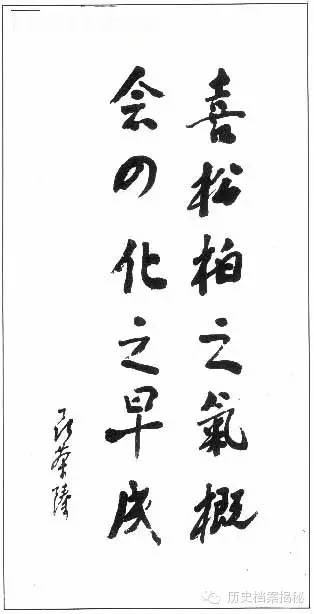 喜松柏之氣概
会四化之早成
历史档案揭秘